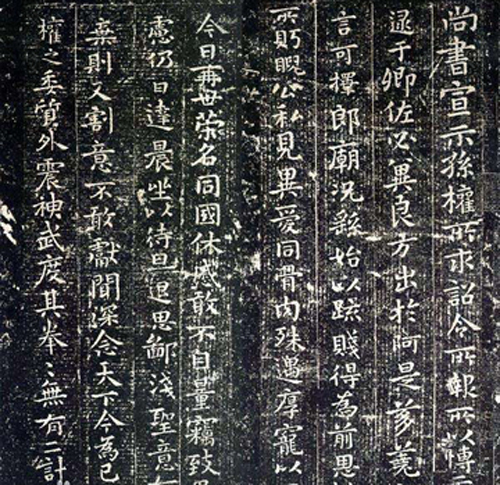 尚書宣示孫權所求詔令所報所以博
逮于卿佐必冀良方出於阿是芻蕘
言可擇郎廟況繇始以疏賤得為前思
所眄睨公私見異愛同骨肉殊遇厚寵以
今日再世榮名同國休慼敢不自量竊致
慮仍日達晨坐以待旦退思鄙淺聖意
棄則又割意不敢獻聞深念天下今為已
權之委質外震神武度其拳〻無有二計